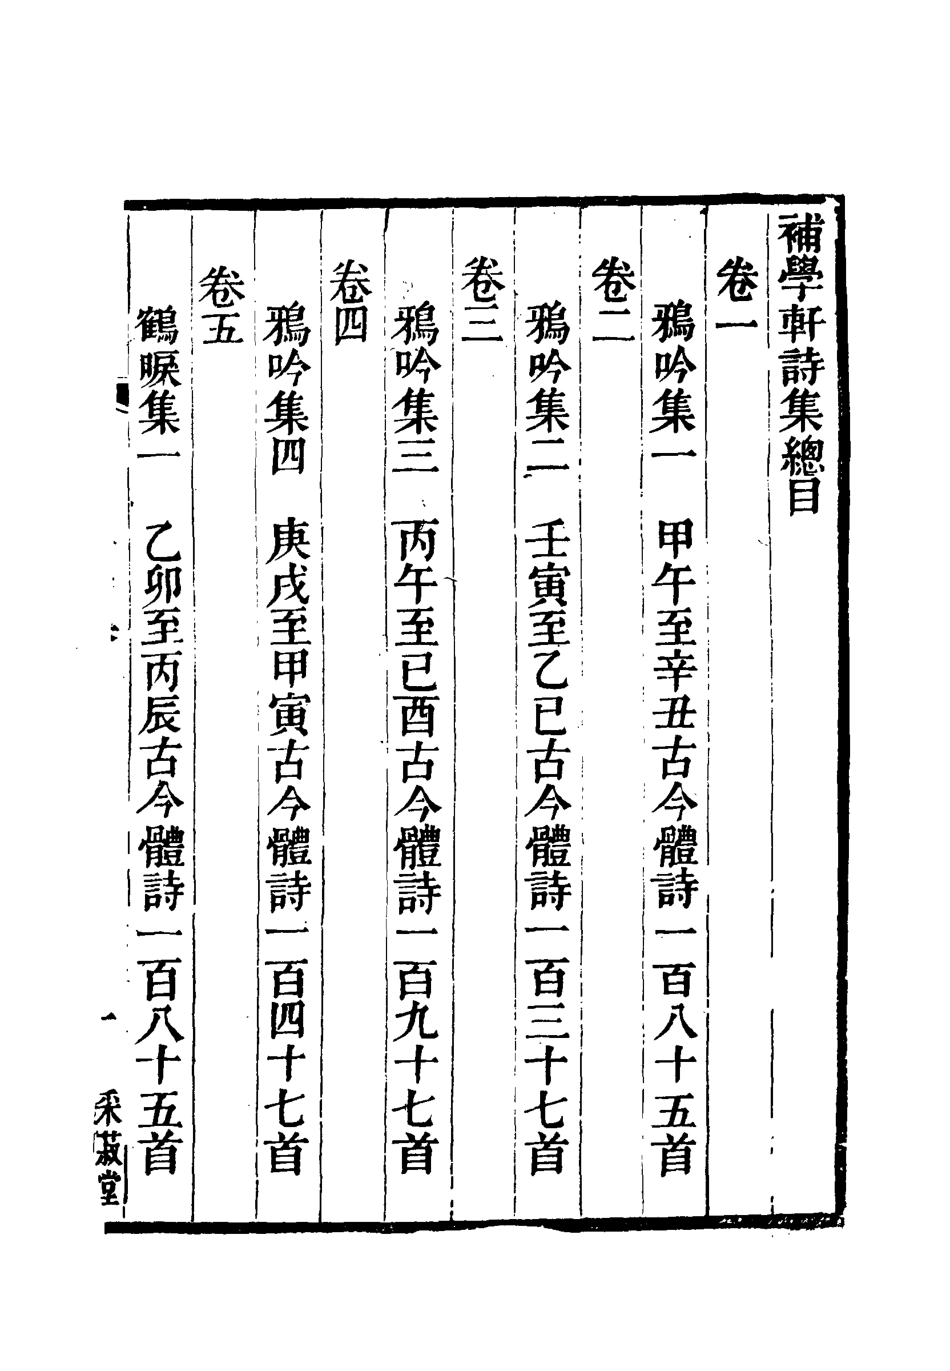 補學軒詩集總目
卷一
鴉吟集一　甲午至辛丑古今體詩一百八十五首
卷二
鴉吟集二　壬寅至乙巳古今體詩一百三十七首
卷三
鴉吟集三　丙午至已酉古今體詩一百九十七首
卷四
鴉吟集四　庚戌至甲寅古今體詩一百四十七首
卷五
鶴唳集一　乙卯至丙辰古今體詩一百八十五首
一
采菽堂